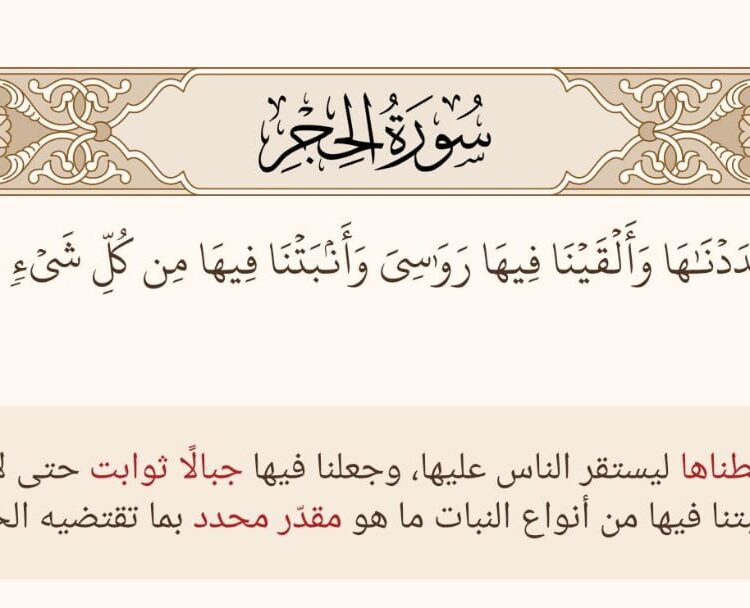 سُورَةُ الحِجْرِ
وَأَلْقَيْنَا فِيهَا رَوَٰسِىَ وَأَنۢبَتْنَا فِيهَا مِن كُلِّ شَىْءٍۢ
ليستقر الناس عليها، وجعلنا فيها جبالًا ثوابت حتى
فيها من أنواع النبات ما هو مقدّر محدد بما تقتضيه